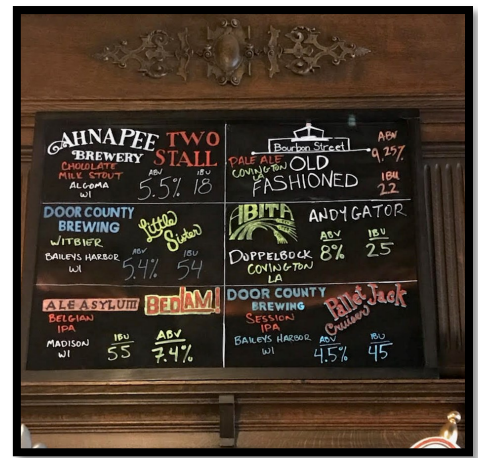 AHNAPEE
BREWERY
TWO
STALL
CHOLOLATE
MILK STOUT
ALGOMA
WI
ABV
5.5%
IBU
18
Bourbon Street
PALE ALE
COVINGTON
LA
OLD
FASHIONED
ABV
9.25%
IBU
22
DOOR COUNTY
BREWING
WITBIER
Little
Sister
BAILEYS HARBOR
WI
ABV
5.4%
IBU
54
ABITA
ANDYGATOR
DOPPELBOCK
COVINGTON
LA
ABV
8%
IBU
25
ALE ASYLUM
BEDLAM!
BELGIAN
IPA
MADISON
WI
IBU
55
ABV
7.4%
DOOR COUNTY
BREWING
Pallet Jack
Cruiser
SESSION
IPA
BAILEYS HARBOR
WI
ABV
4.5%
IBU
45